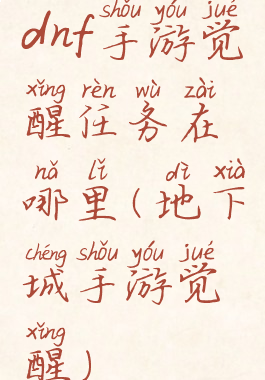 shǒu yóu jué
dnf手游觉
xǐng rèn wù zài
醒任务在
nǎ lǐ dì xià
哪里(地下
chéng shǒu yóu jué
城手游觉
xǐng
醒)